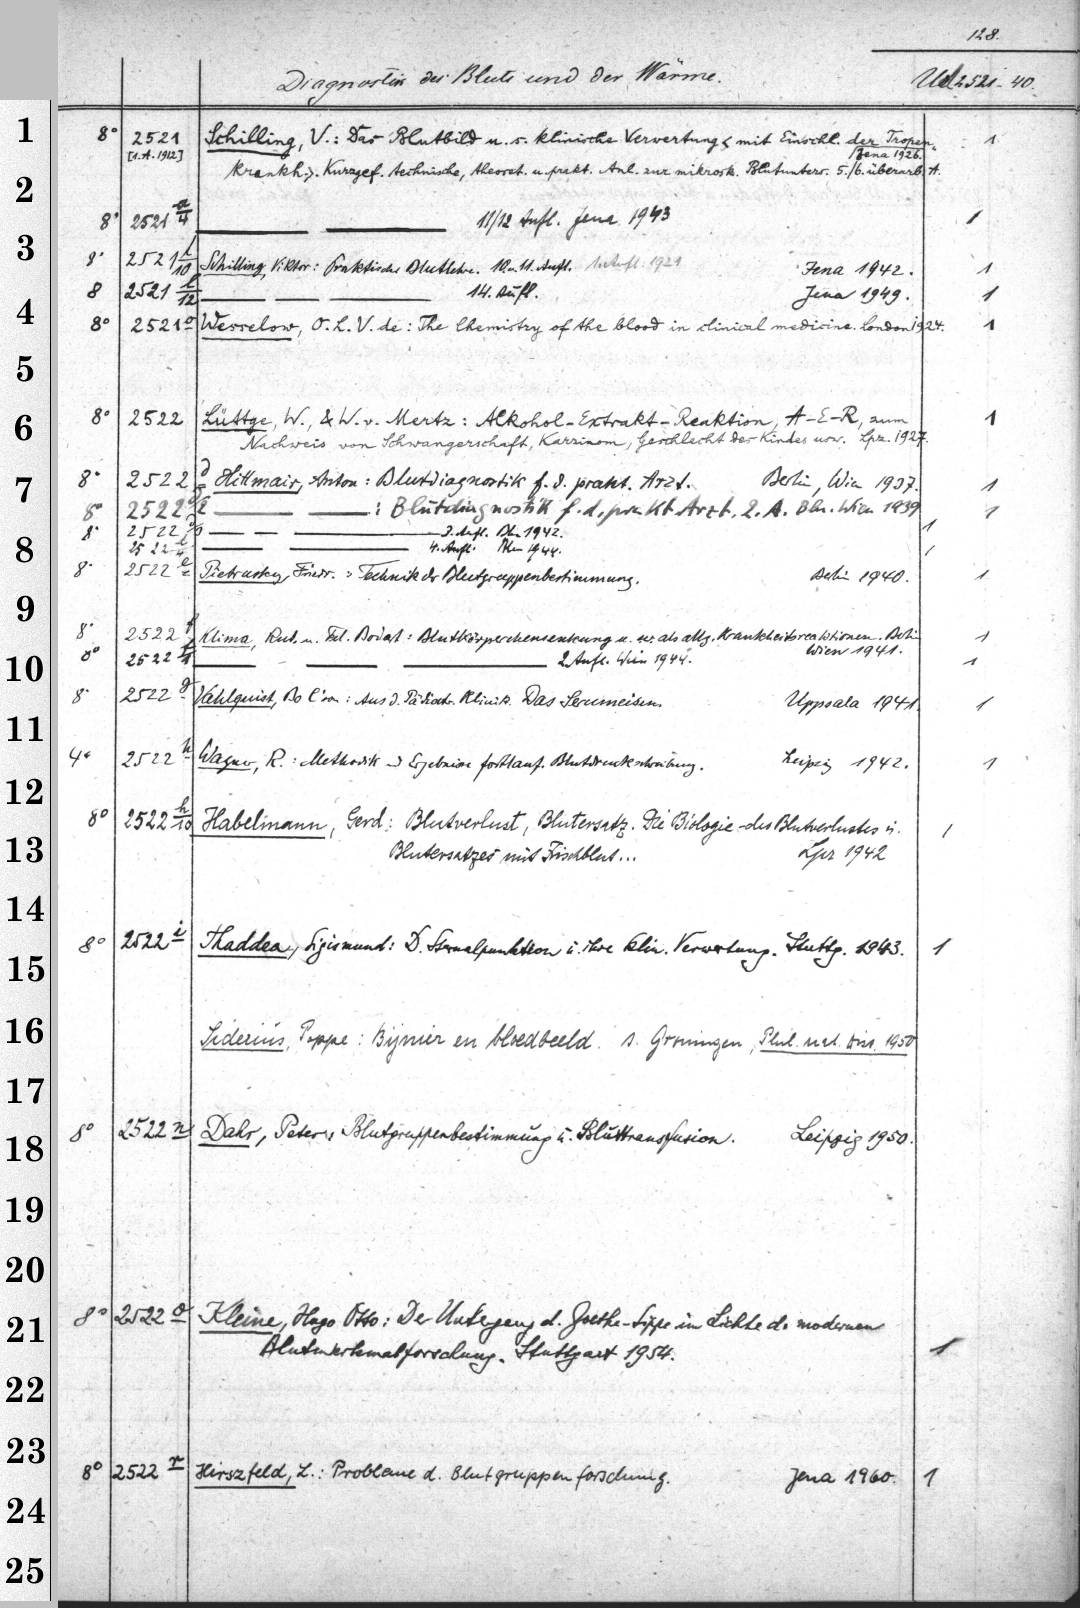 128.
Diagnostik des Bluts und der Wärme. Ud 2521-40.
1 8° 2521 Schilling, V.: Das Blutbild u. s. klinische Verwertung < mit Einschl. der Tropen- 1
[1.A.1912] krankh. >. Kurzgef. technische, theoret. u. prakt. Anl. zur mikrosk. Blutunters. 5./6. überarb. A. Jena 1926.
2
8° 2521 a/4 11/12 Aufl. Jena 1943 1
3 8° 2521 /10 Schilling, Viktor: Praktische Blutlehre. 10. u. 11. Aufl. 1. Aufl. 1921 Jena 1942. 1
8 2521 /12 14. Aufl. Jena 1949. 1
4 8° 2521 Wesselow, O. L. V. de: The Chemistry of the blood in clinical medicine. London 1924. 1
5
6 8° 2522 Lüttge, W., & W. v. Mertz: Alkohol-Extrakt-Reaktion, A-E-R, zum 1
Nachweis von Schwangerschaft, Karzinom, Geschlecht des Kindes usw. Lpz. 1927.
7 8° 2522 d Hittmair, Anton: Blutdiagnostik f. d. prakt. Arzt. Berlin, Wien 1937. 1
8° 2522 : Blutdiagnostik f. d. prakt. Arzt. 2. A. Bln. Wien 1939 1
8° 2522 3. Aufl. Bln 1942. 1
8 2522 4. Aufl. Bln 1944. 1
8° 2522 e Pietrusky, Friedr.: Technik der Blutgruppenbestimmung. Berlin 1940. 1
9
8° 2522 f Klima, Rud. u. Bodart: Blutkörperchensenkung u. als allg. Krankheitsreaktionen. Berlin 1
Wien 1941.
10 8° 2522 f/1 2. Aufl. Wien 1944. 1
8° 2522 g Vahlquist, Bo C:son: Aus d. Pädiatr. Klinik. Das Serumeisen. Uppsala 1941. 1
11
4° 2522 h Wagner, R.: Methodik u. Ergebnisse fortlauf. Blutdruckschreibung. Leipzig 1942. 1
12
8° 2522 h/10 Habelmann, Gerd: Blutverlust, Blutersatz. Die Biologie des Blutverlustes u. 1
13 Blutersatzes mit Frischblut... Lpz 1942
14
8° 2522 i Thaddea, Sigismund: D. Sternalpunktion u. ihre klin. Verwertung. Stuttg. 1943. 1
15
16 Siderius, Poppe: Bijnier en bloedbeeld. s. Groningen, Phil. nat. Diss. 1950
17
18 8° 2522 n Dahr, Peter: Blutgruppenbestimmung u. Bluttransfusion. Leipzig 1950.
19
20
21 8° 2522 o Kleine, Hugo Otto: Der Untergang d. Goethe-Sippe im Lichte d. modernen
Blutmerkmalforschung. Stuttgart 1954. 1
22
23
8° 2522 r Hirszfeld, L.: Probleme d. Blutgruppenforschung. Jena 1960. 1
24
25